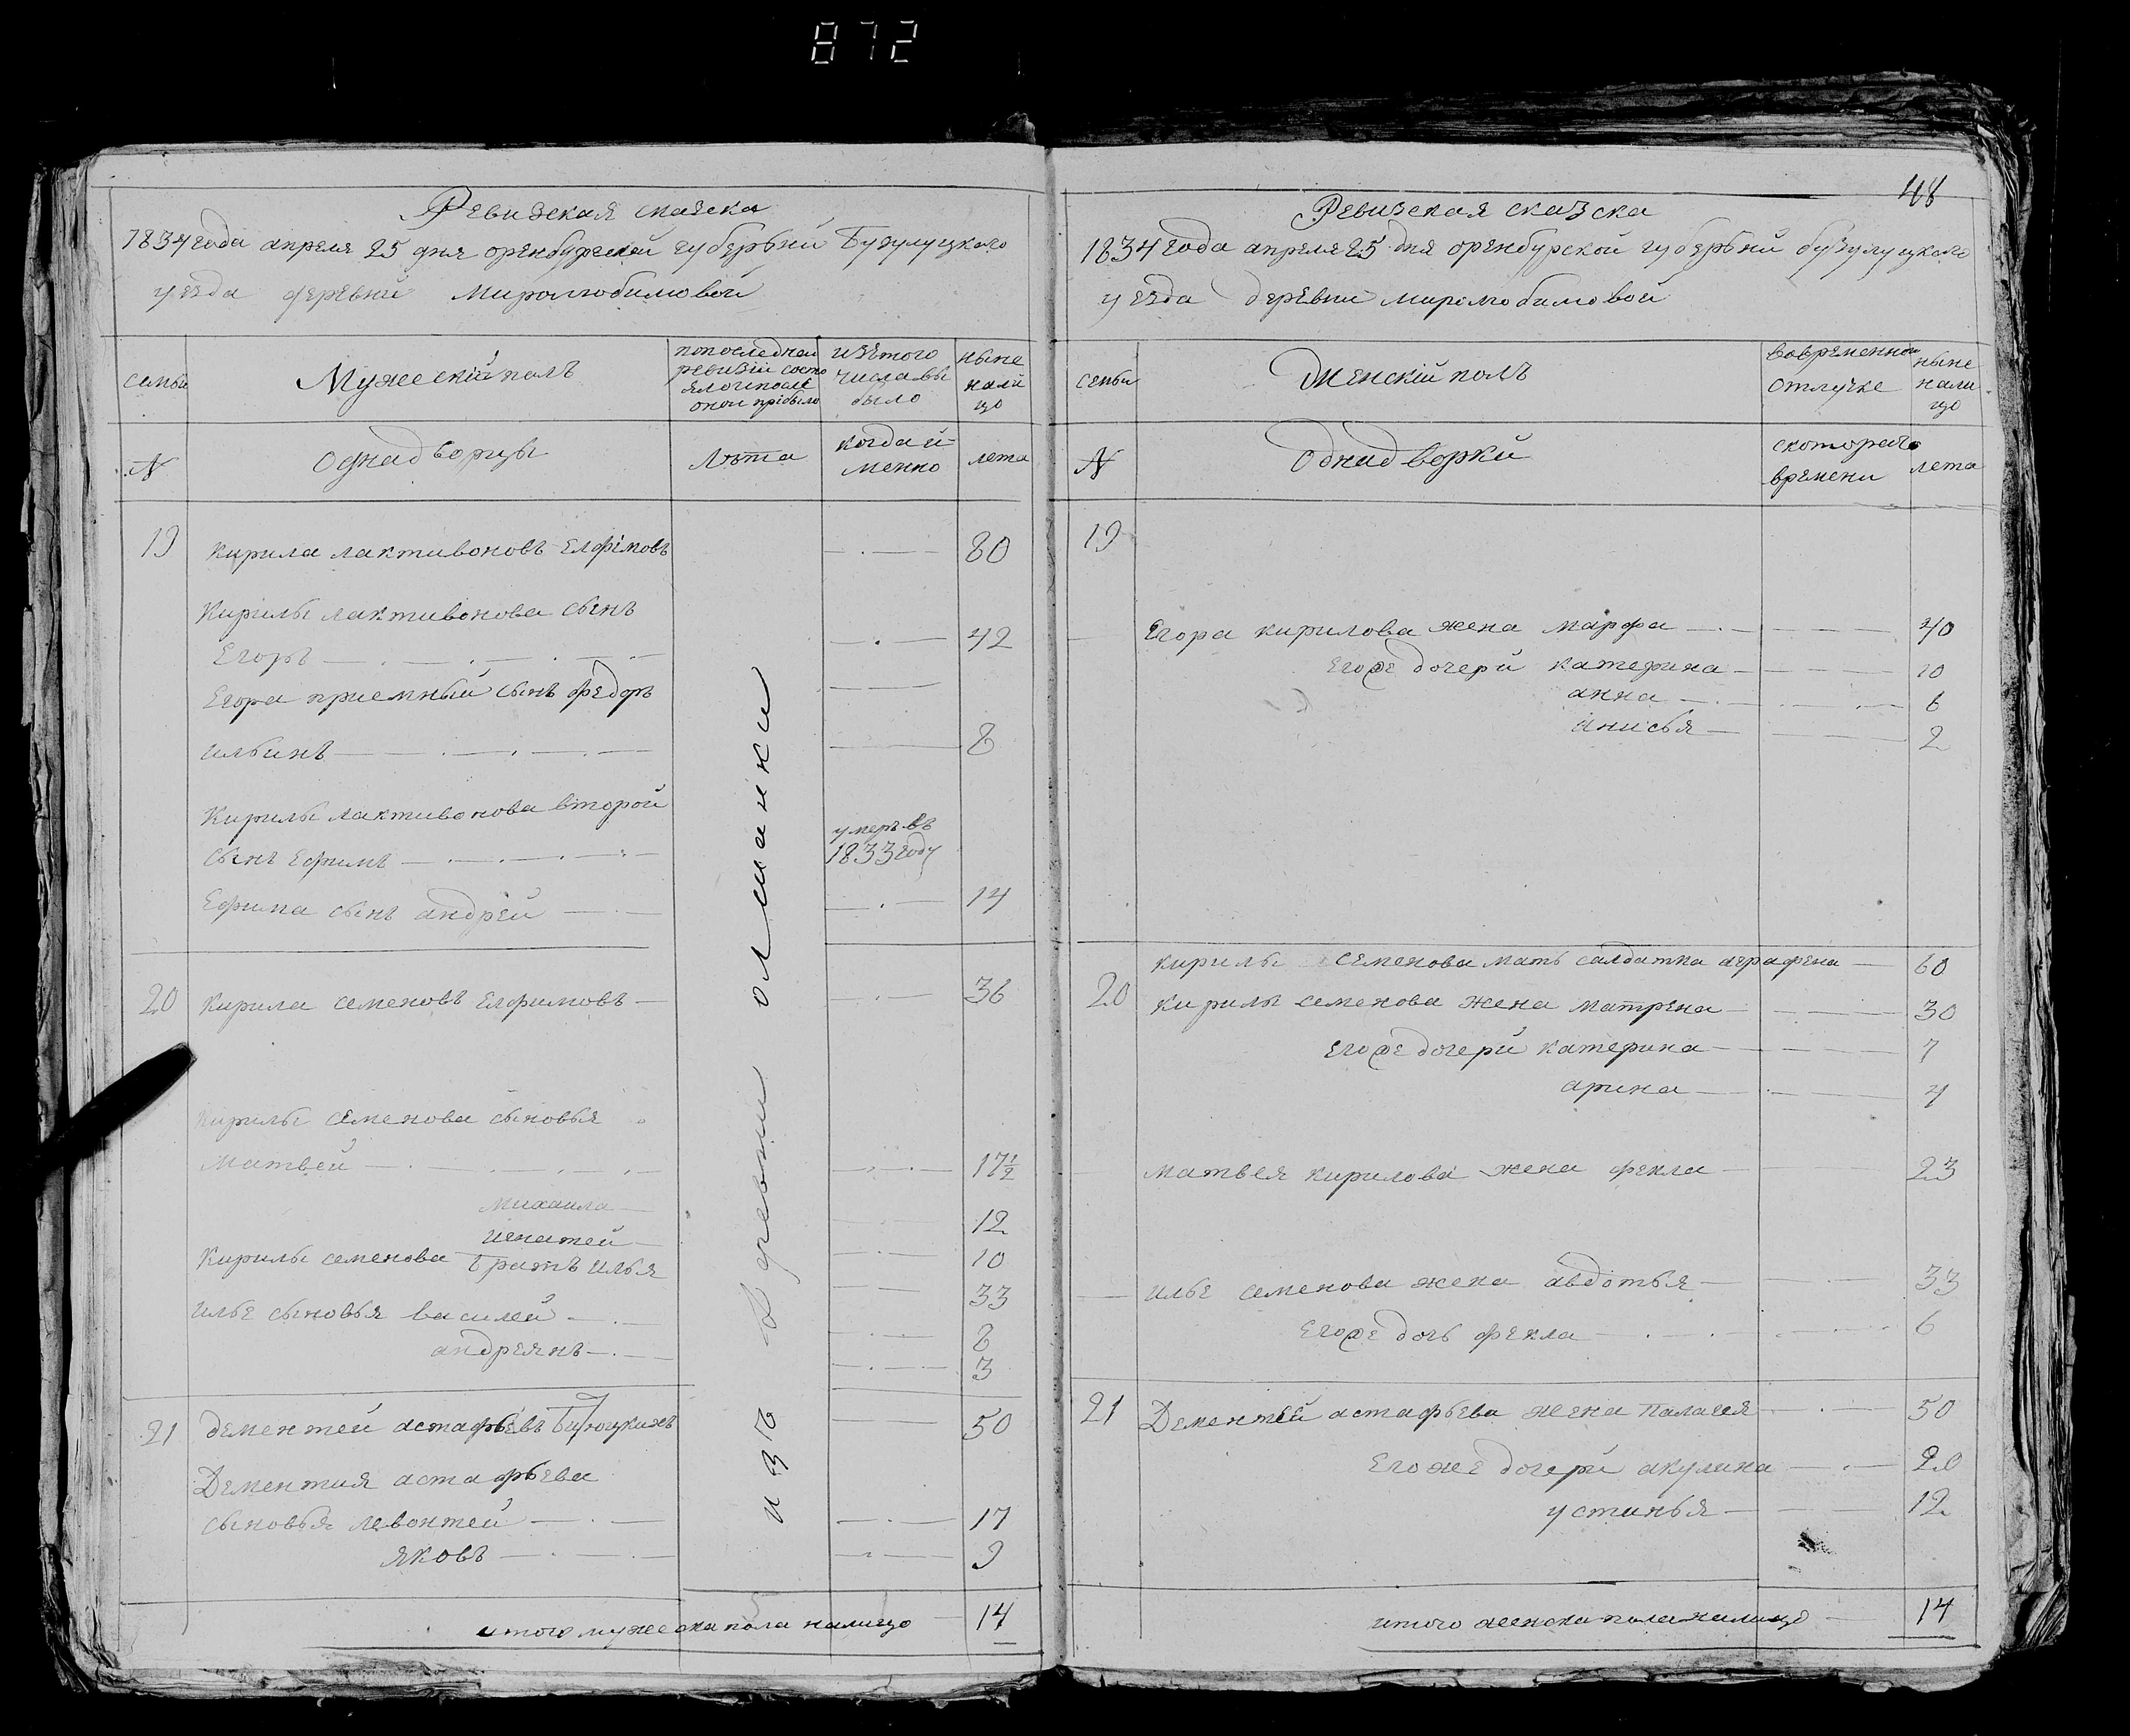 872
Ревизская сказска
1834 года апреля 25 дня оренбурской губерьний Бузулуцкого
уезда деревни Миролюбимовой
семьи
Мужескій полъ
попоследней
ревизіи состо
яло ипосле
оной прібыло
изътого
числа вы
было
ныне
нали
цо
№
Однадворцы
Лѣта
когда и
менно
лета
19
кирила лактивоновъ Елфімовъ
80
Кирилы лактивонова сынъ
Егоръ
42
Егора приемный сынъ федоръ
ильинъ
8
Кирилы лактивонова второй
сынъ Ефимъ
умеръ въ
1833 году
Ефима сынъ андрей
14
20
Кирила семеновъ Елфимовъ
36
Кирилы семенова сыновья
Матвей
17½
михаила
12
игнатей
10
Кирилы семенова братъ илья
33
илье сыновья василей
8
андреянъ
3
21
дементей астафьевъ
50
Дементия астафьева
сыновья левонтей
17
яковъ
9
изъ деревни олшанки
итого мужеска пола налицо
14
48
Ревизская сказска
1834 года апреля 25 дня оренбурской губерьний бузулуцкаго
уезда деревни миролюбимовой
семьи
Женскій полъ
вовременной
отлучке
ныне
нали
цо
№
Однадворки
скотораго
времени
лета
19
Егора кирилова жена марфа
40
Егоже дочери катерина
10
анна
6
анисья
2
кирилы семенова мать салдатка аграфена
60
20
Кирилы семенова жена матрена
30
Егоже дочери катерина
7
арина
4
матвея кирилова жена фекла
23
илье семенова жена авдотья
33
Егоже дочь фекла
6
21
Дементей астафьева жена палагея
50
Егоже дочери акулина
20
устинья
12
итого женска пола налицо
14